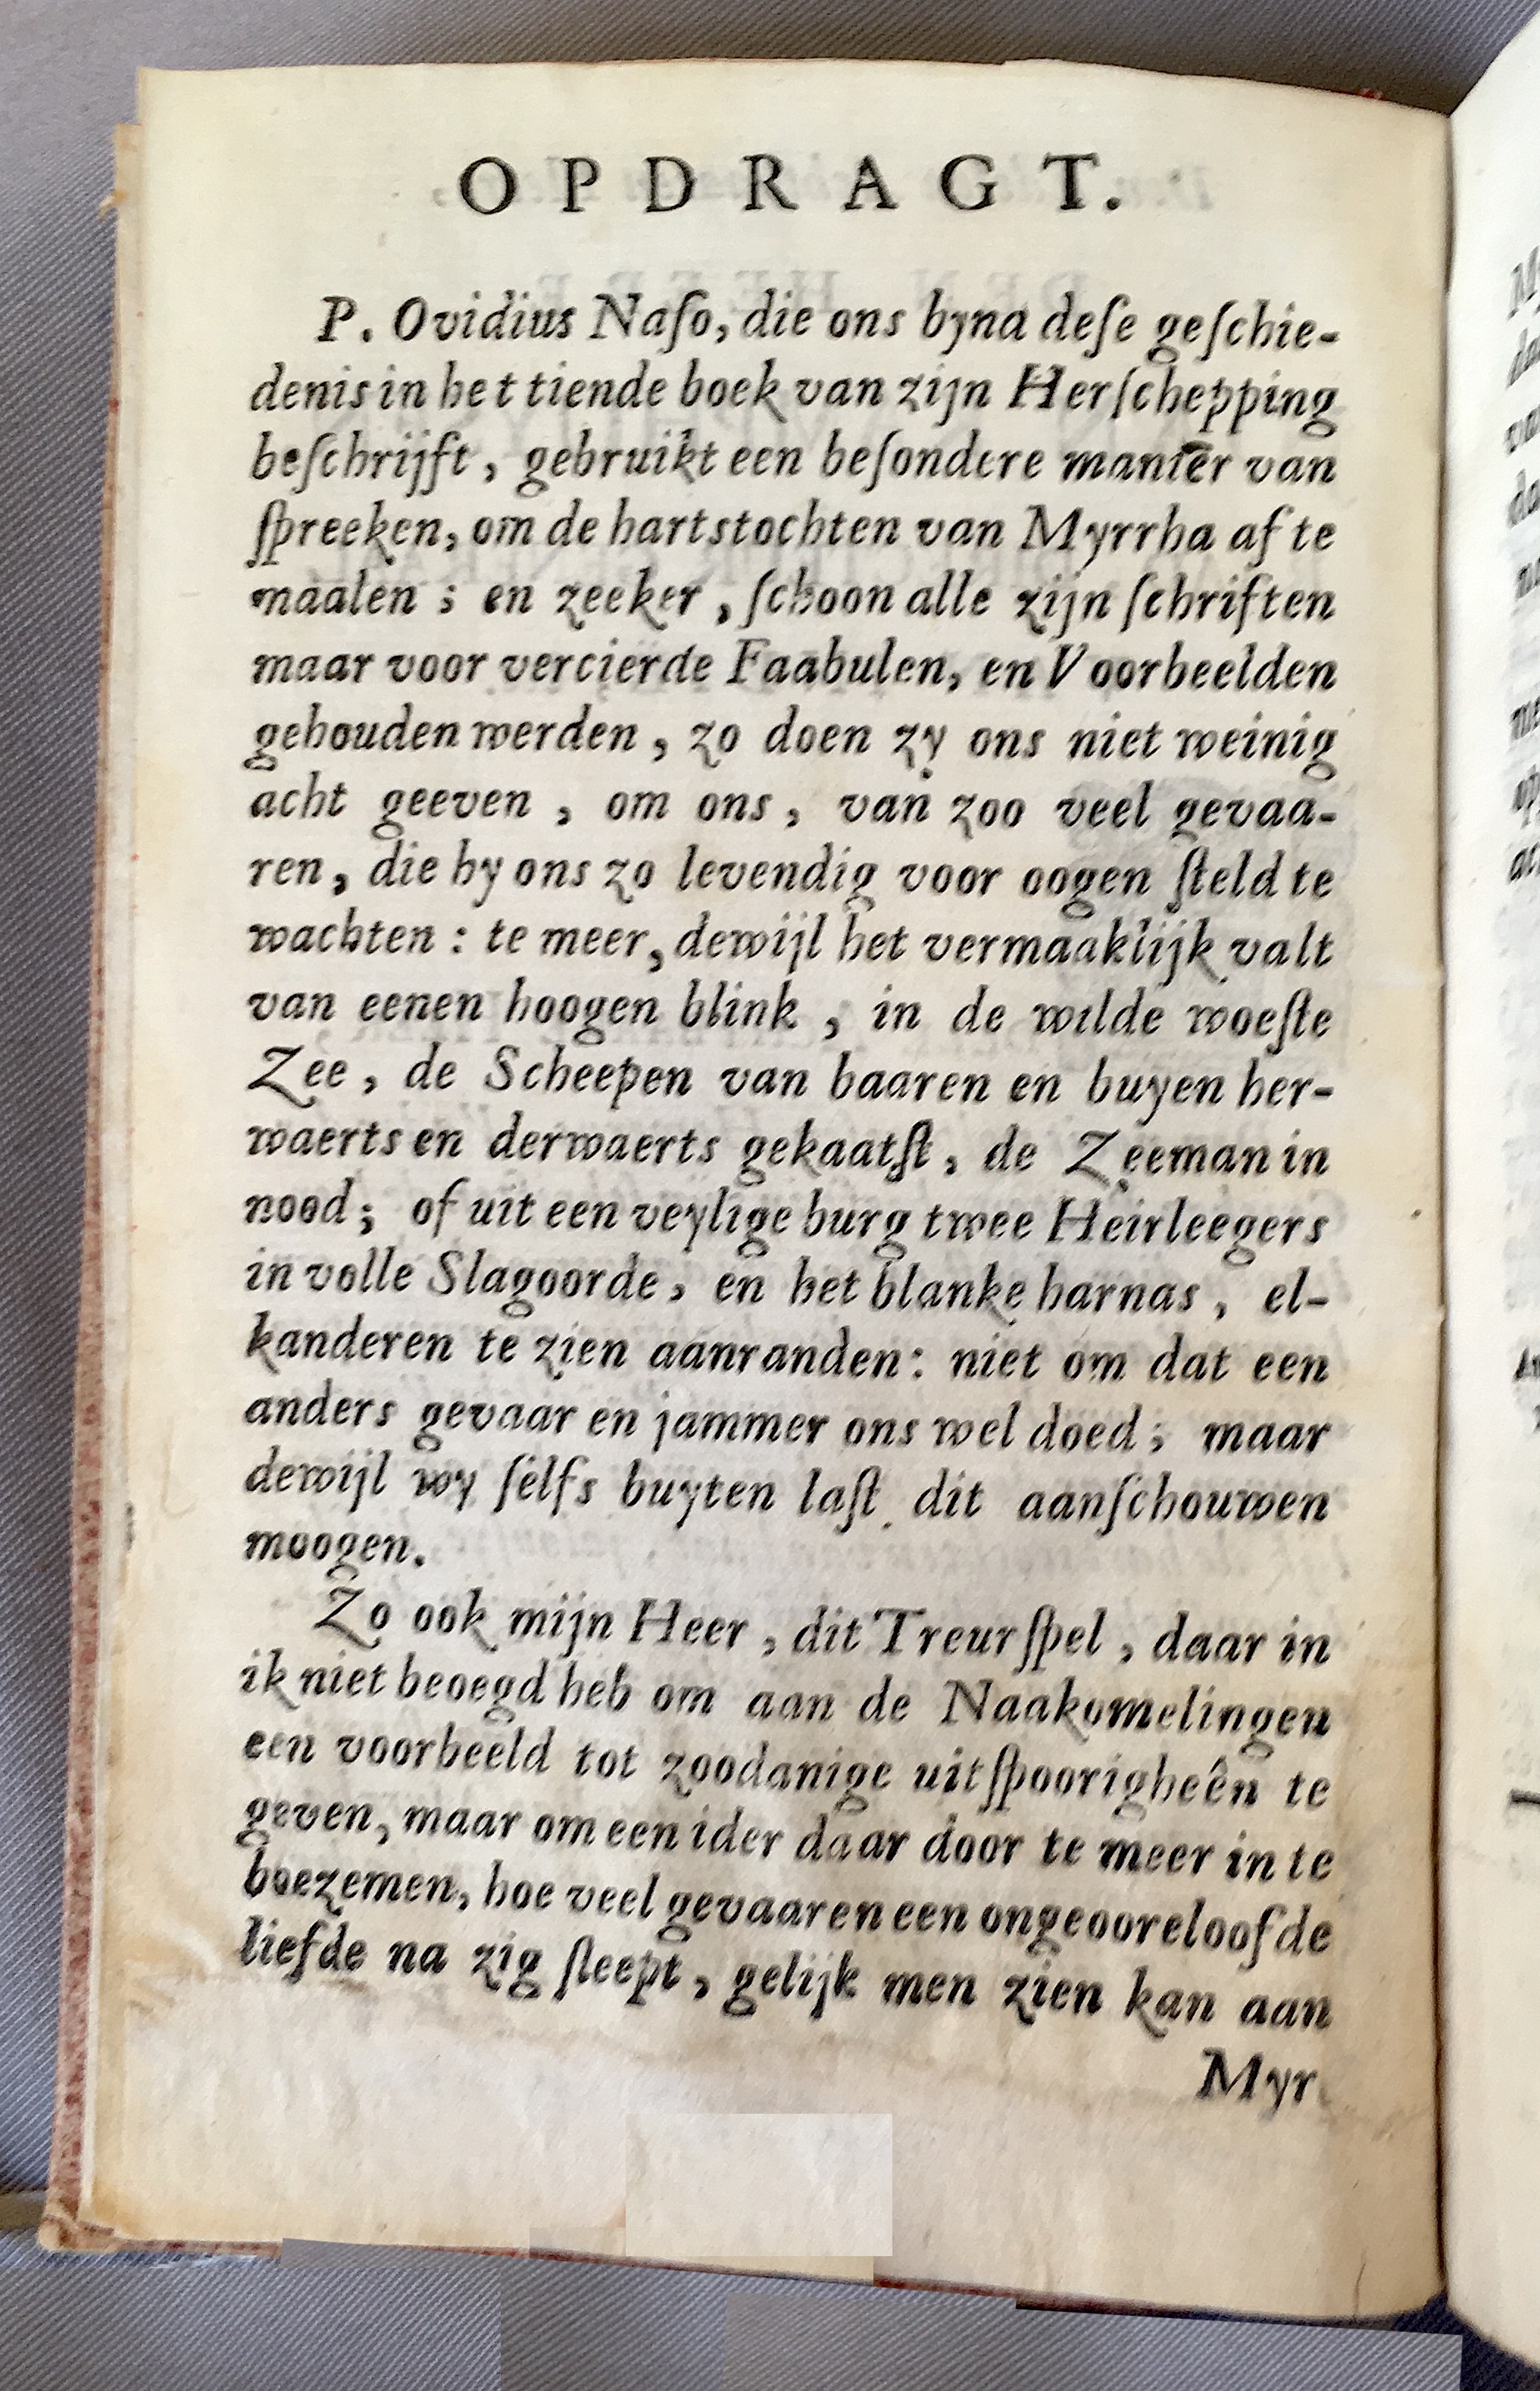 OPDRAGT.
P. Ovidius Naſo, die ons byna deſe geſchie-
denis in het tiende boek van zijn Herſchepping
beſchrijft, gebruikt een beſondere manier van
ſpreeken, om de hartstochten van Myrrha af te
maalen; en zeeker, ſchoon alle zijn ſchriften
maar voor vercierde Faabulen, en Voorbeelden
gehouden werden, zo doen zy ons niet weinig
acht geeven, om ons, van zoo veel gevaa-
ren, die hy ons zo levendig voor oogen ſteld te
wachten: te meer, dewijl het vermaaklijk valt
van eenen hoogen blink, in de wilde woeſte
Zee, de Scheepen van baaren en buyen her-
waerts en derwaerts gekaatſt, de Zeeman in
nood; of uit een veylige burg twee Heirleegers
in volle Slagoorde, en het blanke harnas, el-
kanderen te zien aanranden: niet om dat een
anders gevaar en jammer ons wel doed; maar
dewijl wy ſelfs buyten laſt dit aanſchouwen
moogen.
Zo ook mijn Heer, dit Treurſpel, daar in
ik niet beoegd heb om aan de Naakomelingen
een voorbeeld tot zoodanige uitſpoorigheên te
geven, maar om een ider daar door te meer in te
boezemen, hoe veel gevaaren een ongeooreloofde
liefde na zig ſleept, gelijk men zien kan aan
Myr